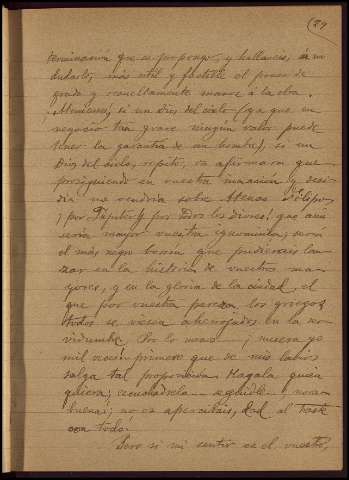 (29
terminación que se propongo, y hallareis, sin
dudarlo, más util y factible el poner de
grado y resueltamente manos á la obra.
Atenienses, si un Dios del cielo (ya que en
negocio tan grave ningún valor puede
tener la garantía de un hombre), si un
Dios del cielo, repito, os afirmara que
persiguiendo en vuestra inacción y desi-
dia no vendría sobre Atenas Filipo,
¡por Júpiter y por todos los dioses! que aun
sería mayor vuestra ignominia; sería
el más negro borrón que pudierais lan-
zar en la historia de vuestros ma-
yores, y en la gloria de la ciudad, el
que por vuestra pereza los griegos
todos se viesen aherrojados en la ser-
vidumbre. Por lo menos ¡muera yo
mil veces primero que de mis labios
salga tal proposición. Hágala quien
quiera; escuchadela, seguidle; nora-
buena; no os apercibais, dad al traste
con todo.
Pero si mi sentir es el vuestro,